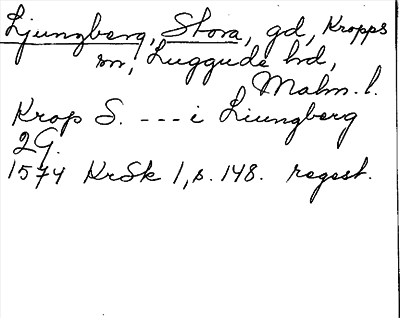 Ljungberg, Stora, gd, Kropps
sn, Luggude hd,
Malm. l.
Krop S. --- i Liungberg
2G.
1574 KrSk 1, s. 148. regest.